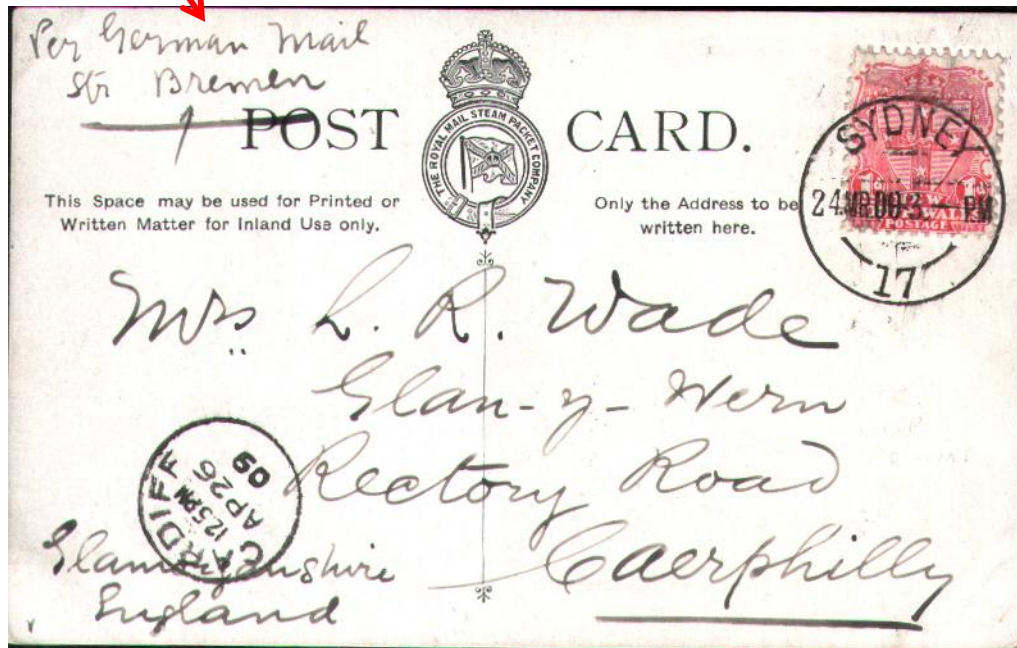 Per German Mail
Str Bremen
POST CARD.
THE ROYAL MAIL STEAM PACKET COMPANY
This Space may be used for Printed or
Written Matter for Inland Use only.
Only the Address to be
written here.
SYDNEY
24 MR 09 3 - PM
17
1d 1d
WALES
POSTAGE
Mrs L. R. Wade
Glan-y-Wern
Rectory Road
Caerphilly
Glamorganshire
England
CARDIFF
125PM
AP 26
09